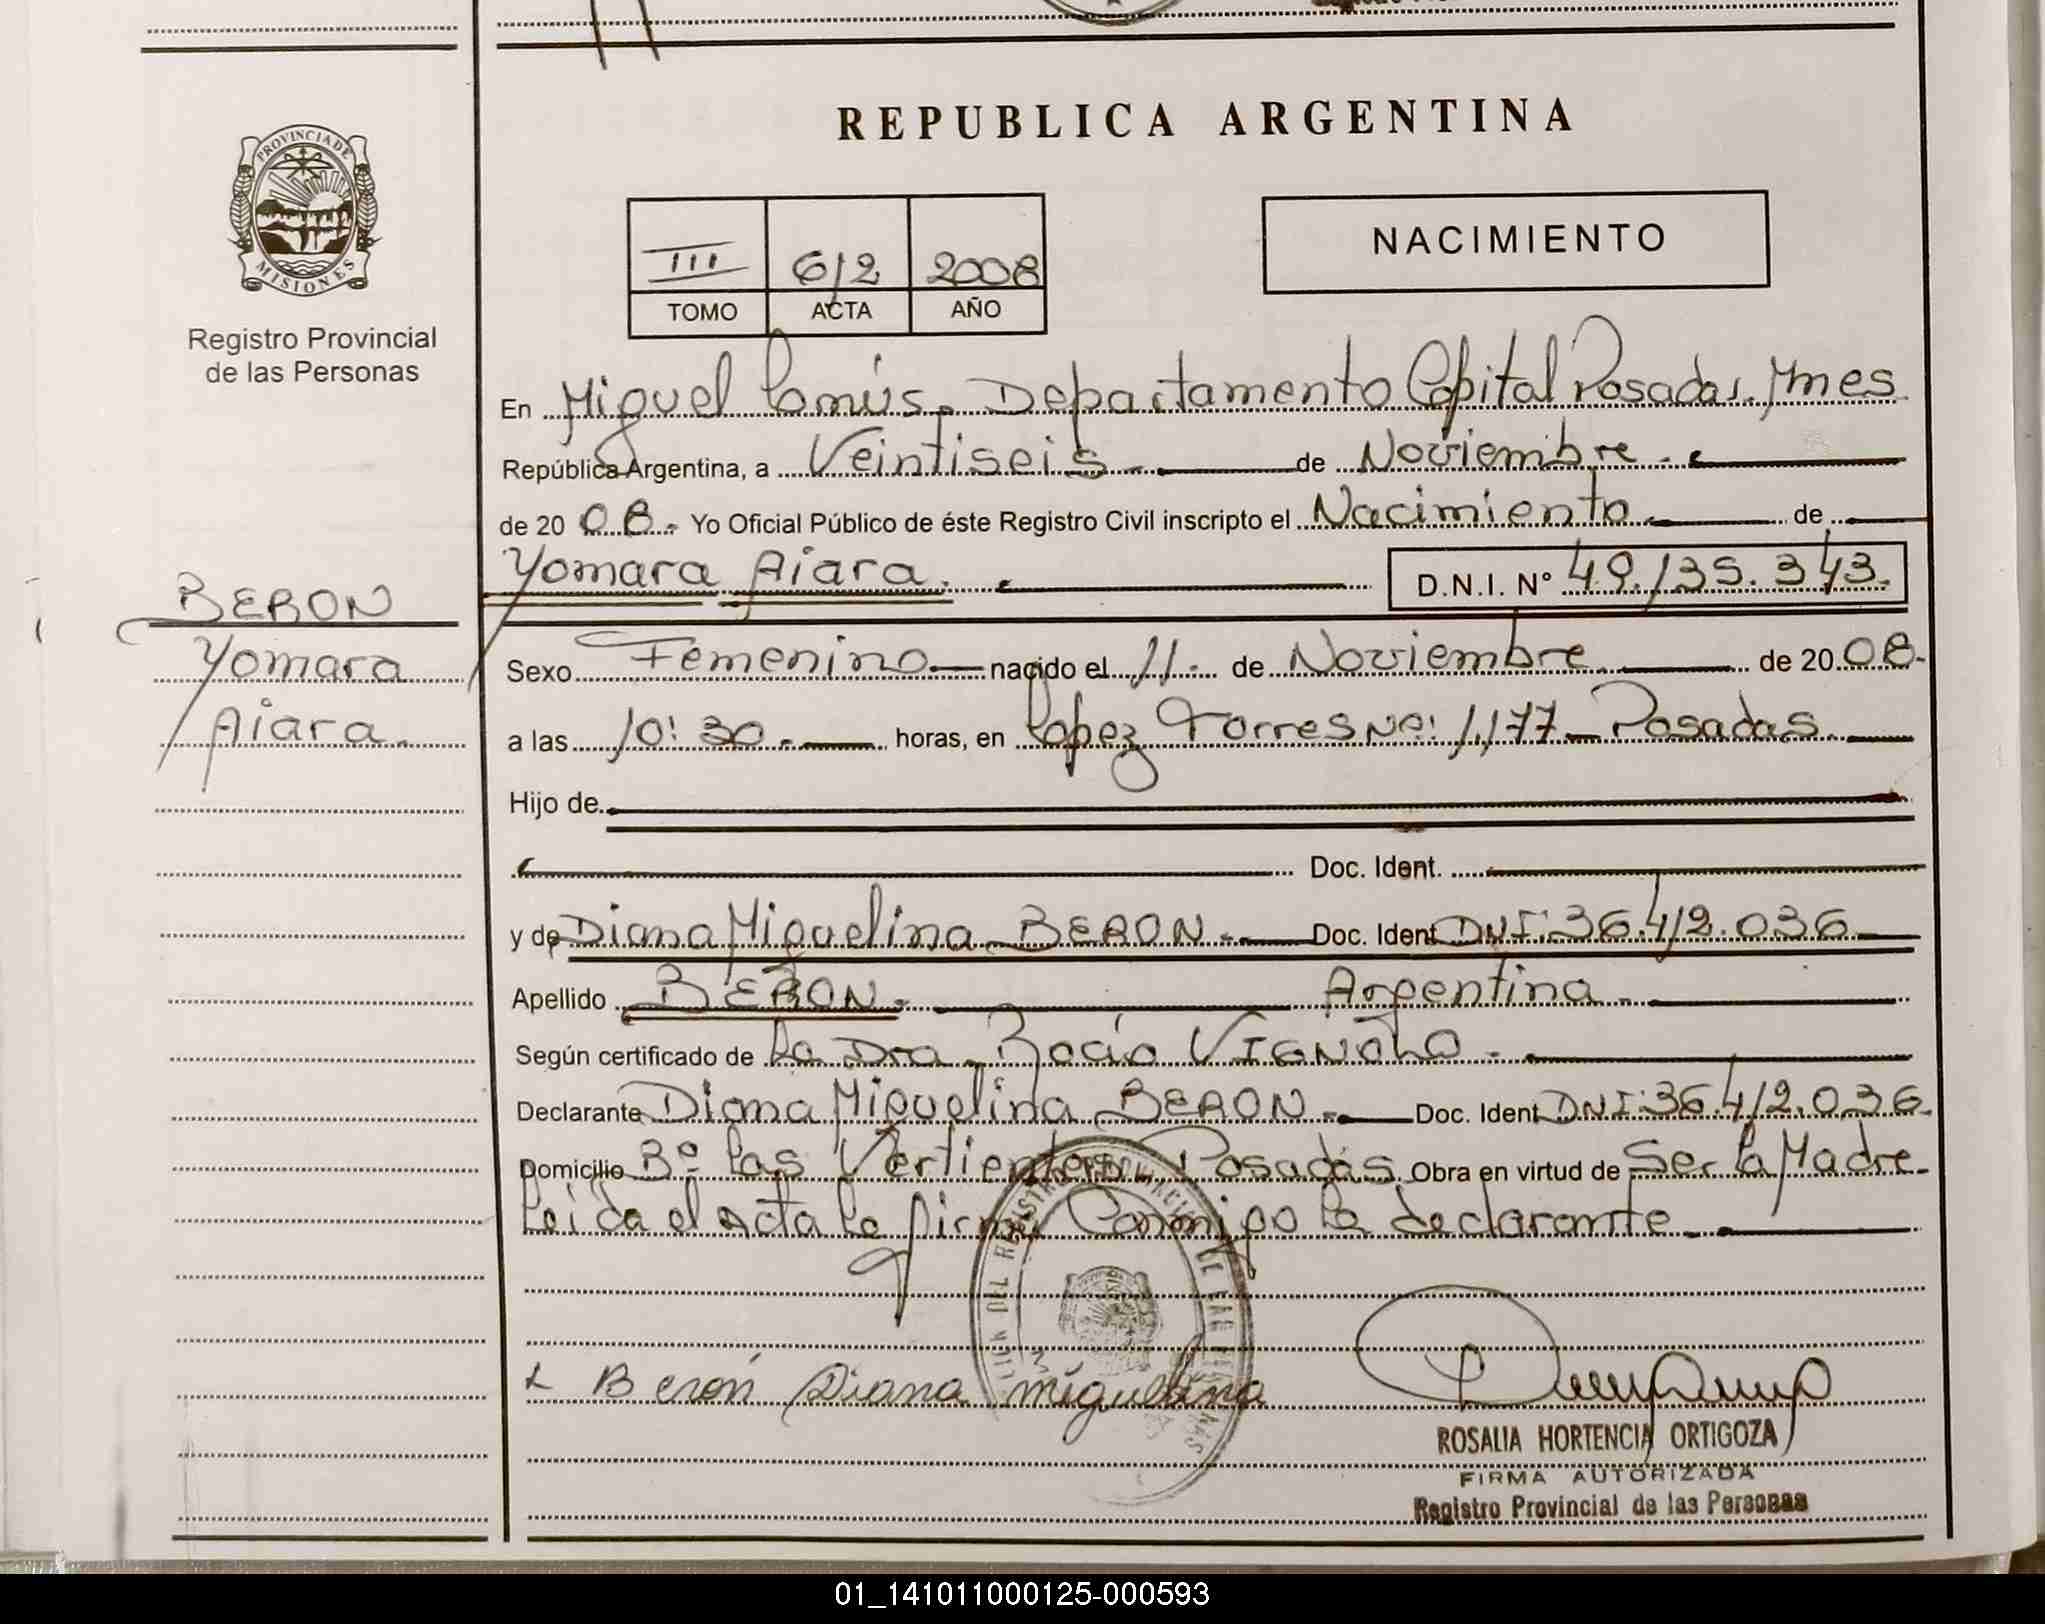 REPUBLICA ARGENTINA
PROVINCIA DE MISIONES
NACIMIENTO
III 612 2008
TOMO ACTA AÑO
Registro Provincial
de las Personas
En Miguel Lanús. Departamento Capital Posadas. Mnes
República Argentina, a Veintiseis de Noviembre.
de 20 08. Yo Oficial Público de éste Registro Civil inscripto el Nacimiento de
Yomara Aiara. D.N.I. N° 49.135.343.
BERON
Yomara
Aiara.
Sexo Femenino nacido el 11. de Noviembre de 20 08.
a las 10:30. horas, en Lopez Torres Nº: 1.177 Posadas.
Hijo de
Doc. Ident.
y de Diana Miguelina BERON. Doc. Ident DNI:36.412.036
Apellido BERON. Argentina.
Según certificado de La Dra. Rocío
Declarante Diana Miguelina BERON. Doc. Ident DNI:36.412.036.
Domicilio Bº Las Vertientes. Posadas. Obra en virtud de Ser la Madre
Leida el Acta la firma Conmigo la declarante.
Berón Diana Miguelina
ROSALIA HORTENCIA ORTIGOZA
FIRMA AUTORIZADA
Registro Provincial de las Personas
01_141011000125-000593